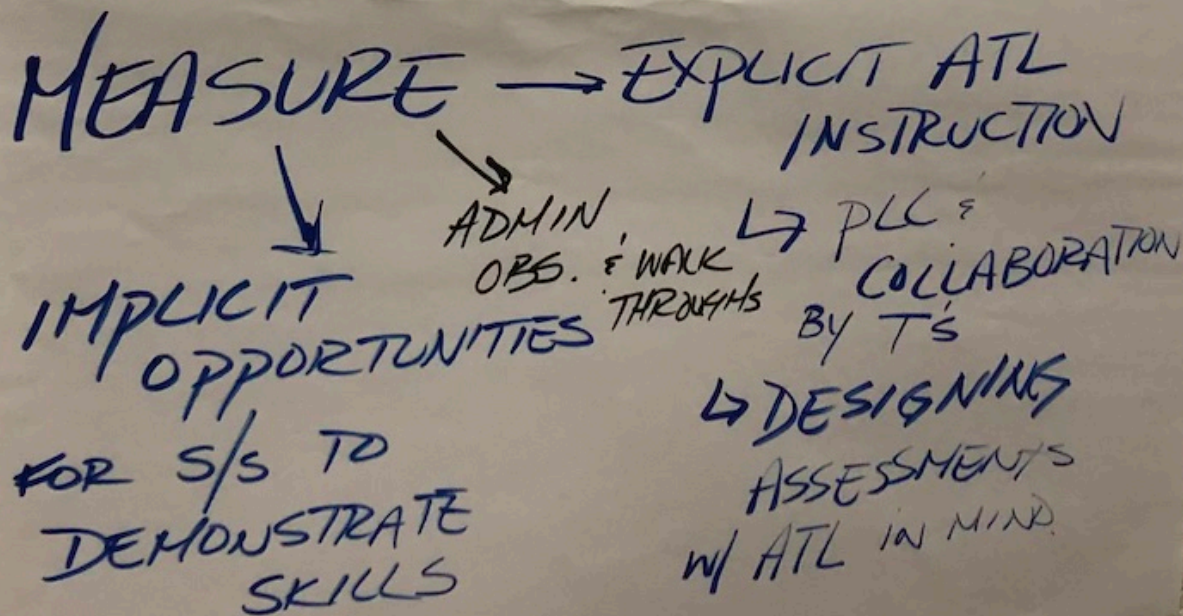 MEASURE → EXPLICIT ATL
INSTRUCTION
↳ PLC &
COLLABORATION
BY T's
↳ DESIGNING
ASSESSMENTS
w/ ATL IN MIND
ADMIN
OBS. & WALK
THROUGHS
IMPLICIT
OPPORTUNITIES
FOR S/s TO
DEMONSTRATE
SKILLS